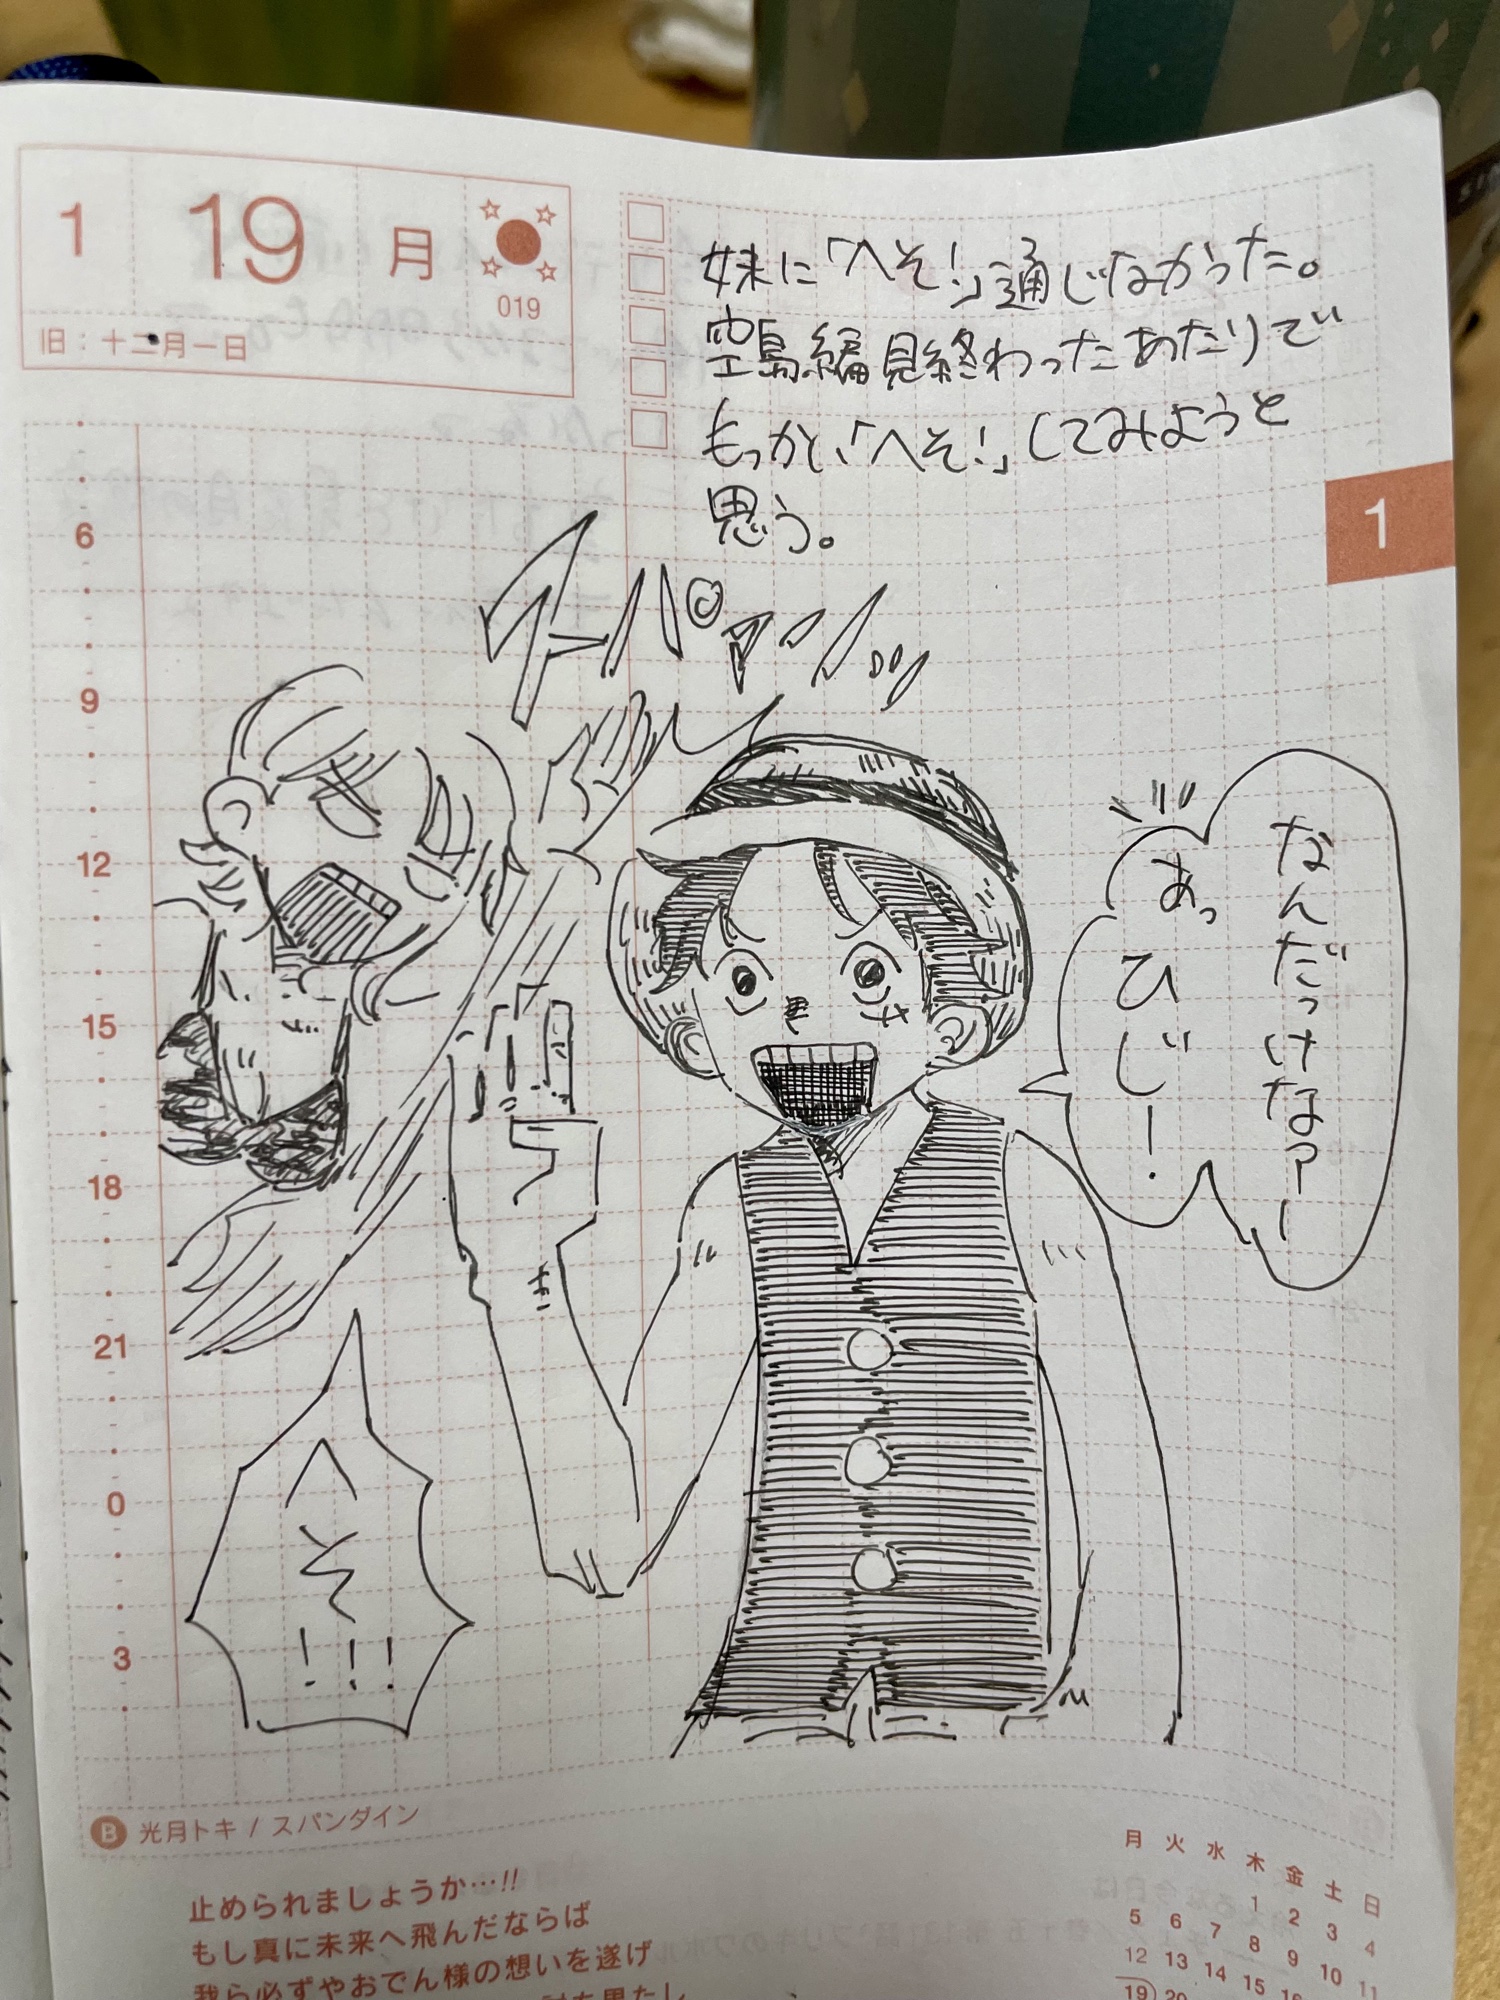 1 19 月
019
旧：十二月一日
妹に「へそ！」通じなかった。
空島編見終わったあたりで
もっかい「へそ！」してみようと
思う。
1
イーパァンッ
なんだっけな？ー
あっ
ひじー！
へそ！！！
6
9
12
15
18
21
0
3
B 光月トキ / スパンダイン
止められましょうか…!!
もし真に未来へ飛んだならば
我ら必ずやおでん様の想いを遂げ
月 火 水 木 金 土 日
1 2 3 4
5 6 7 8 9 10 11
12 13 14 15 16
19 20